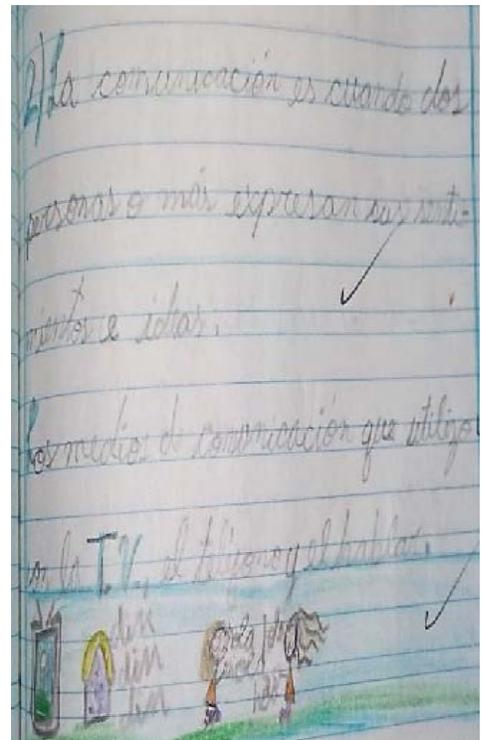 2) La comunicación es cuando dos
personas o más expresan sus senti-
mientos e ideas.
Los medios de comunicación que utilizo
son la T.V., el teléfono y el hablar.
din
din
din